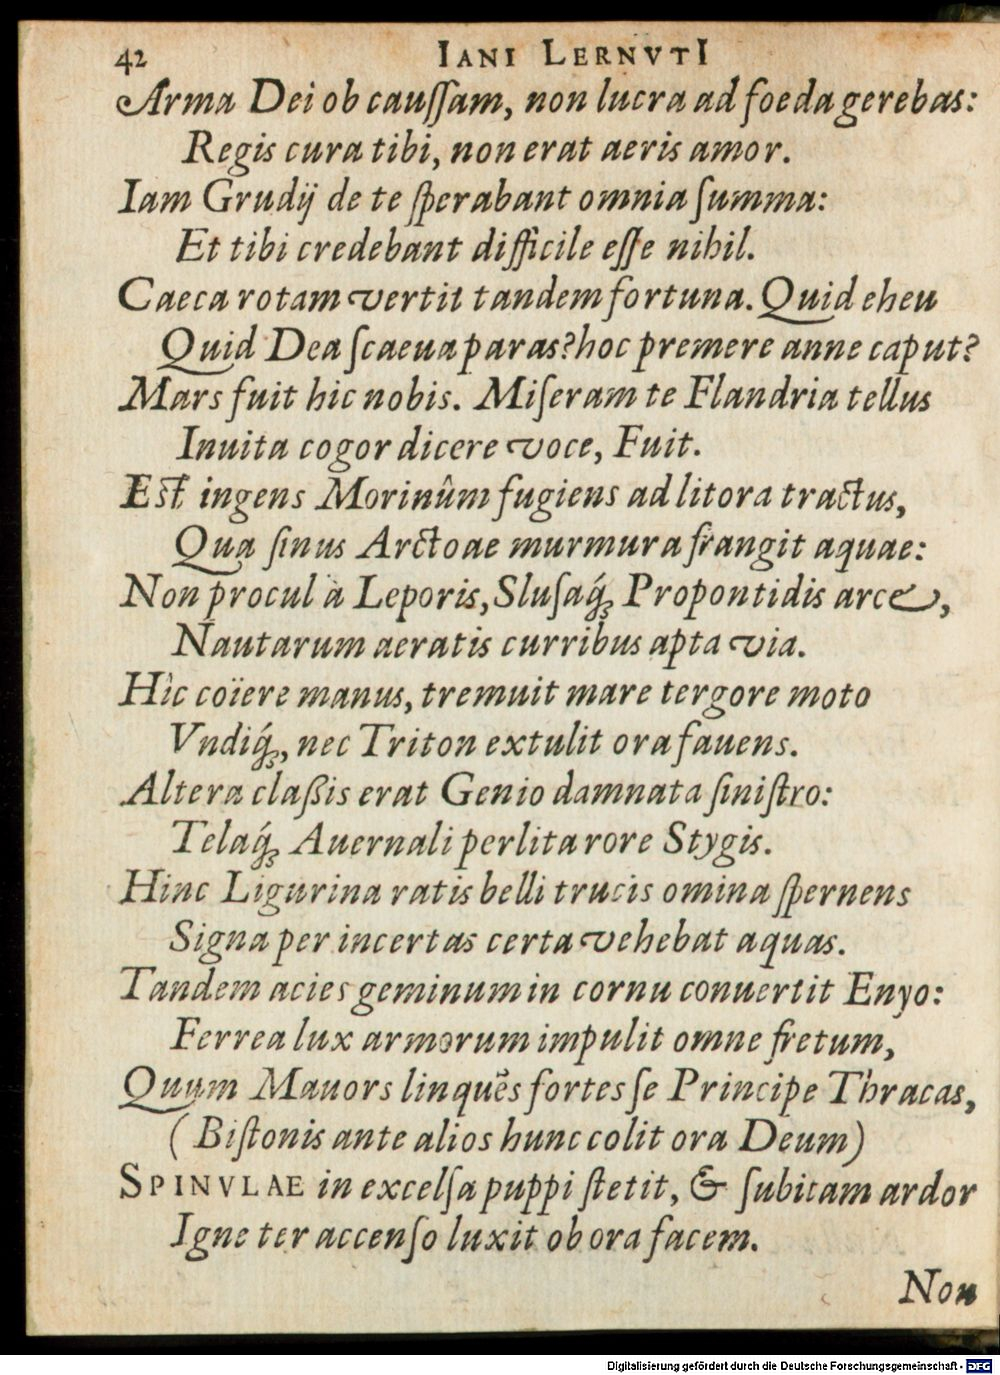 42 IANI LERNVTI
Arma Dei ob caussam, non lucra ad foeda gerebas:
Regis cura tibi, non erat aeris amor.
Iam Grudij de te sperabant omnia summa:
Et tibi credebant difficile esse nihil.
Caeca rotam vertit tandem fortuna. Quid eheu
Quid Dea scaeua paras? hoc premere anne caput?
Mars fuit hic nobis. Miseram te Flandria tellus
Inuita cogor dicere voce, Fuit.
Est ingens Morinûm fugiens ad litora tractus,
Qua sinus Arctoae murmura frangit aquae:
Non procul à Leporis, Slusaq́; Propontidis arce,
Nautarum aeratis curribus apta via.
Hìc coïere manus, tremuit mare tergore moto
Vndiq́;, nec Triton extulit ora fauens.
Altera claßis erat Genio damnata sinistro:
Telaq́; Auernali perlita rore Stygis.
Hinc Ligurina ratis belli trucis omina spernens
Signa per incertas certa vehebat aquas.
Tandem acies geminum in cornu conuertit Enyo:
Ferrea lux armorum impulit omne fretum,
Quum Mauors linquẽs fortes se Principe Thracas,
( Bistonis ante alios hunc colit ora Deum)
SPINVLAE in excelsa puppi stetit, & subitam ardor
Igne ter accenso luxit ob ora facem.
Non
Digitalisierung gefördert durch die Deutsche Forschungsgemeinschaft - DFG